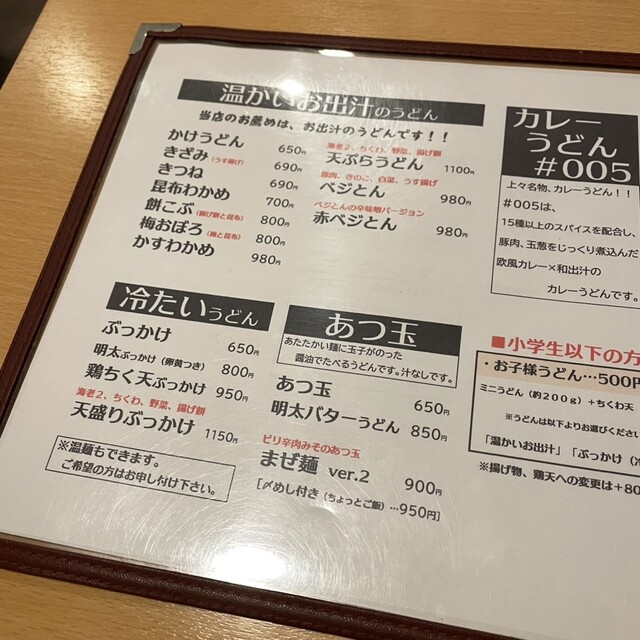 温かいお出汁のうどん
当店のお薦めは、お出汁のうどんです！！
かけうどん 650円
きざみ（うす揚げ） 690円
きつね 690円
昆布わかめ 700円
餅こぶ（揚げ餅と昆布） 800円
梅おぼろ（梅と昆布） 800円
かすわかめ 980円
海老2、ちくわ、野菜、揚げ餅
天ぷらうどん 1100円
豚肉、きのこ、白菜、うす揚げ
ベジとん 980円
ベジとんの辛味噌バージョン
赤ベジとん 980円
カレー
うどん
＃005
上々名物、カレーうどん！！
＃005は、
15種以上のスパイスを配合し、
豚肉、玉葱をじっくり煮込んだ
欧風カレー×和出汁の
カレーうどんです。
冷たいうどん
ぶっかけ 650円
明太ぶっかけ（卵黄つき） 800円
鶏ちく天ぶっかけ 950円
海老2、ちくわ、野菜、揚げ餅
天盛りぶっかけ 1150円
※温麺もできます。
ご希望の方はお申し付け下さい。
あつ玉
あたたかい麺に玉子がのった
醤油でたべるうどんです。汁なしです。
あつ玉 650円
明太バターうどん 850円
ピリ辛肉みそのあつ玉
まぜ麺 ver.2 900円
［〆めし付き（ちょっとご飯）…950円］
■小学生以下の方
・お子様うどん…500円
ミニうどん（約200g）＋ちくわ天
※うどんは以下よりお選びください
「温かいお出汁」「ぶっかけ（冷
※揚げ物、鶏天への変更は＋80